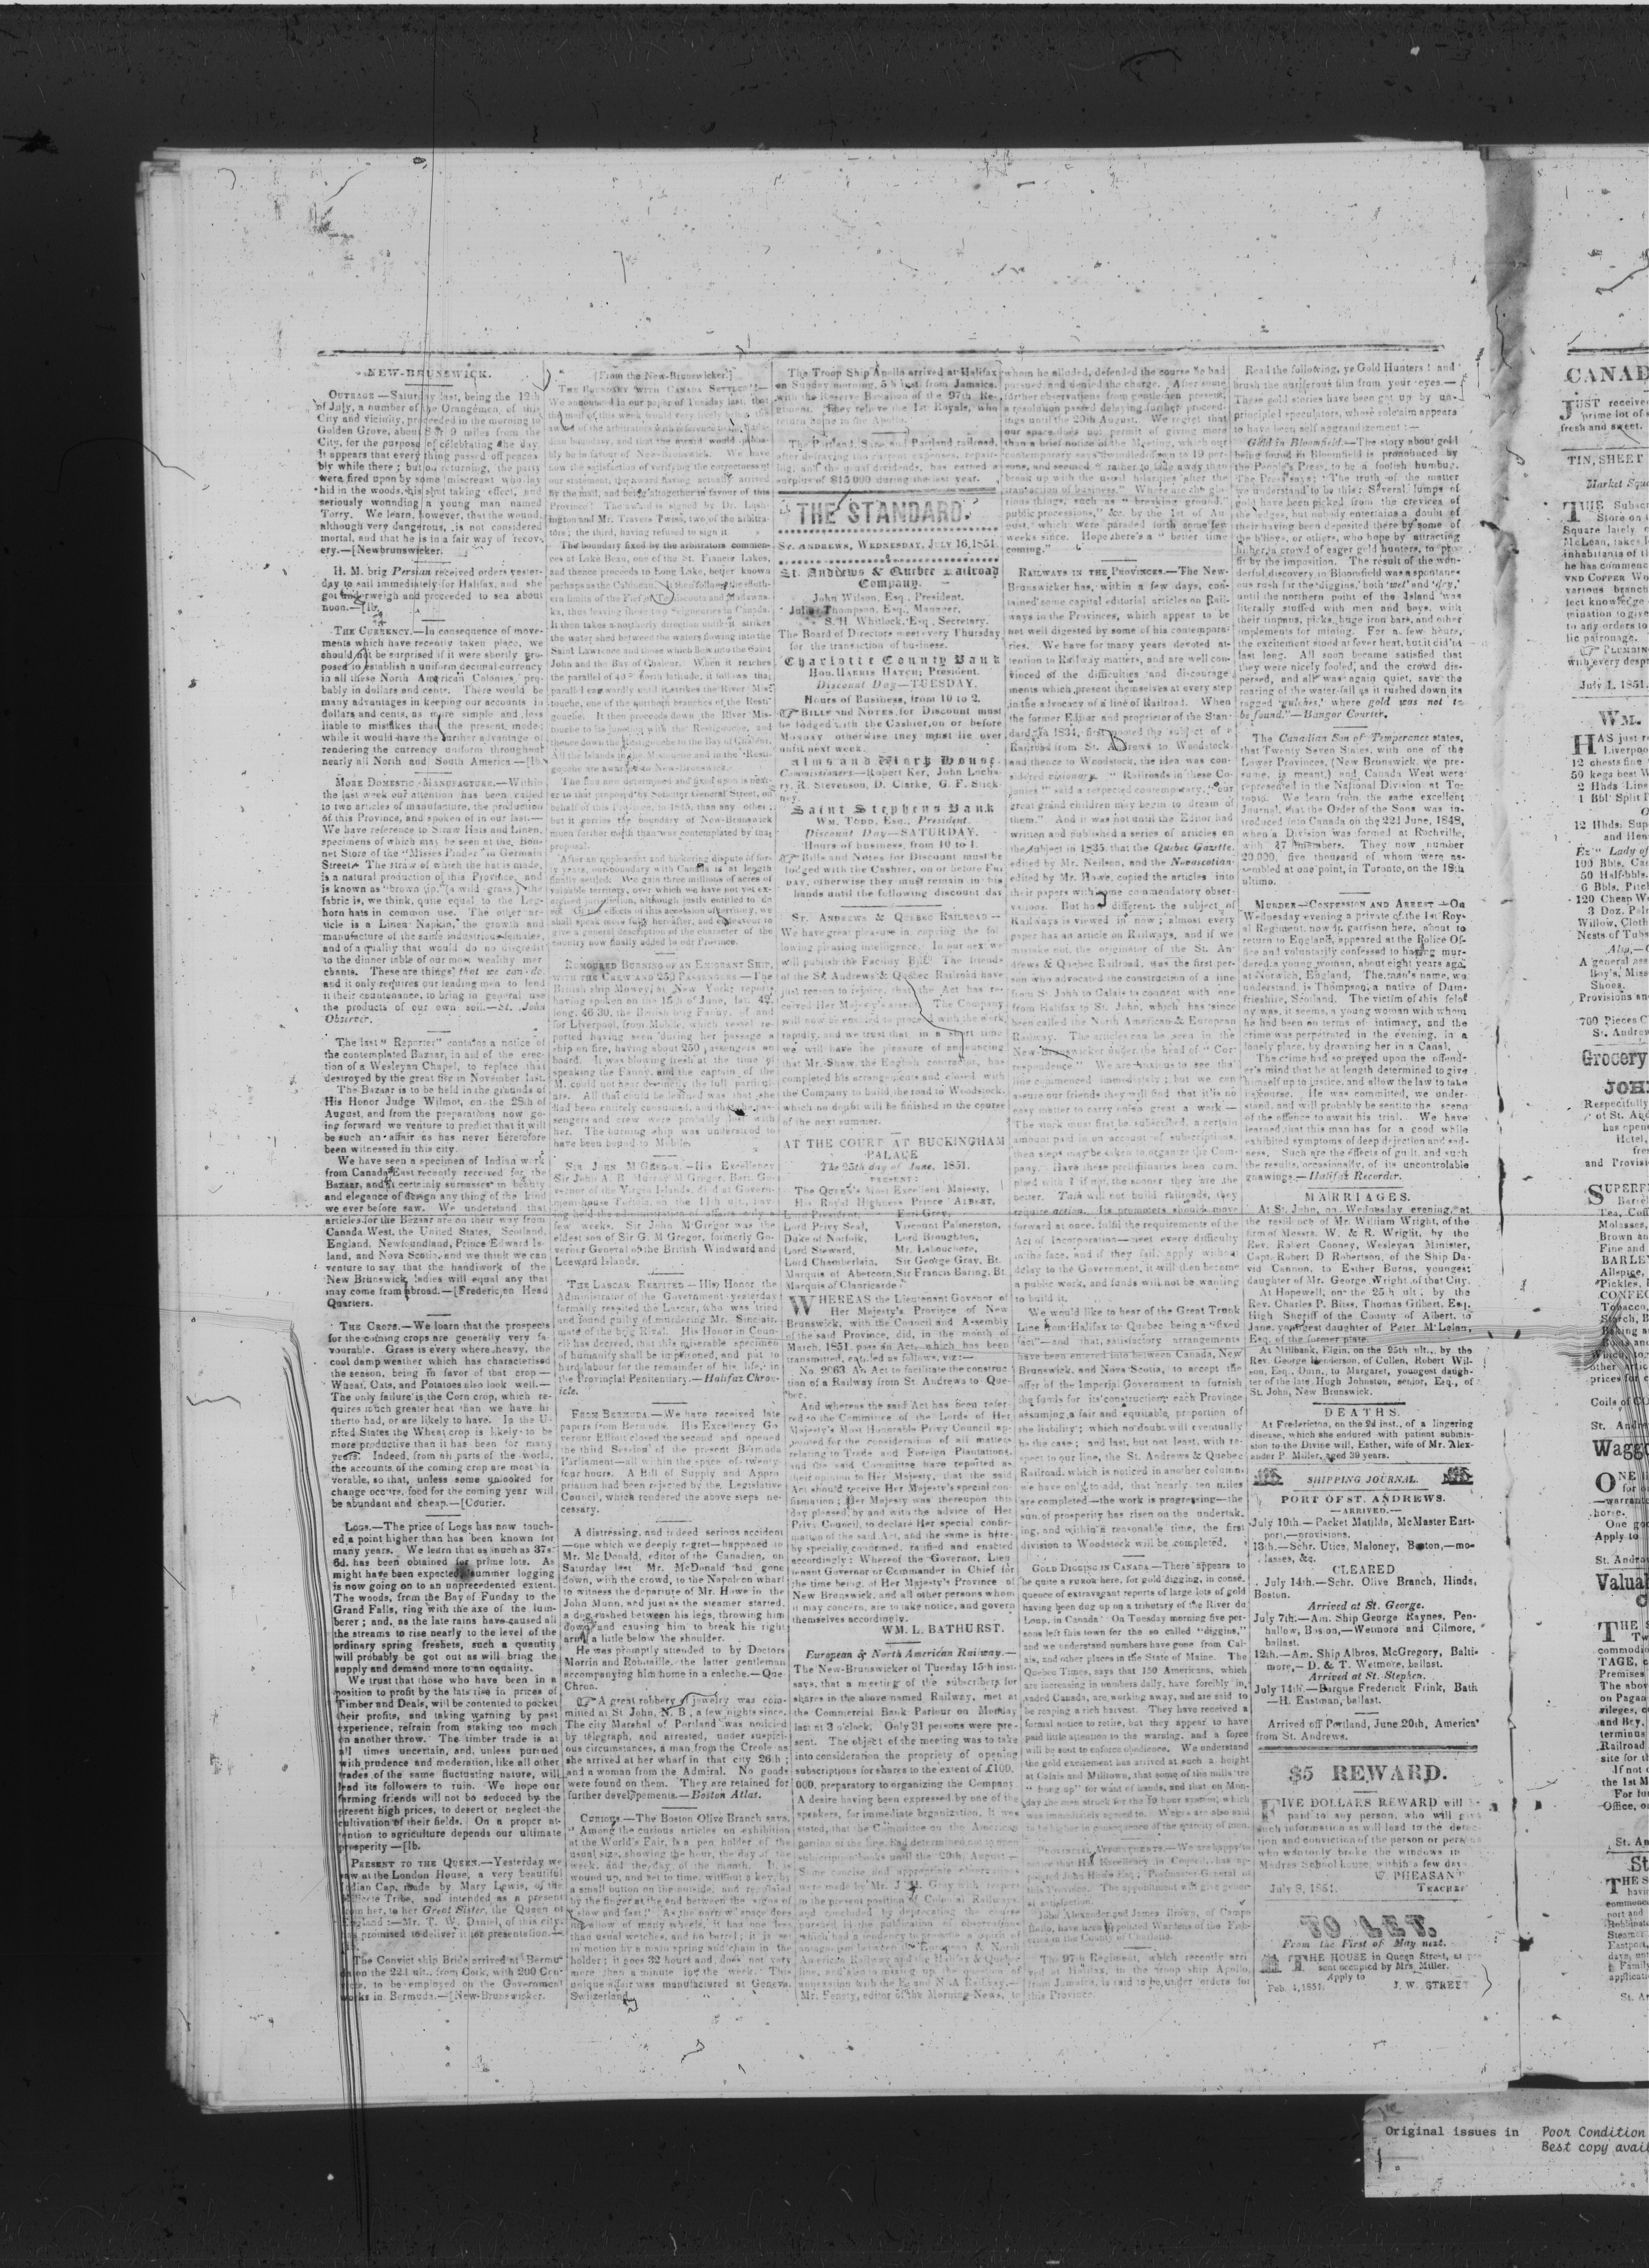 NEW-BRUNSWICK.
OUTRAGE.—Saturday last, being the 12th
of July, a number of the Orangemen, of this
City and vicinity, proceeded in the morning to
Golden Grove, about 8 or 9 miles from the
City, for the purpose of celebrating the day.
It appears that every thing passed off peacea-
bly while there; but on returning, the party
were fired upon by some miscreant who lay
hid in the woods, his shot taking effect, and
seriously wounding a young man named
Torry. We learn, however, that the wound,
although very dangerous, is not considered
mortal, and that he is in a fair way of recov-
ery.—[Newbrunswicker.
H. M. brig Persian received orders yester-
day to sail immediately for Halifax, and she
got underweigh and proceeded to sea about
noon.—[Ib.
THE CURRENCY.—In consequence of move-
ments which have recently taken place, we
should not be surprised if it were shortly pro-
posed to establish a uniform decimal currency
in all these North American Colonies, pro-
bably in dollars and cents. There would be
many advantages in keeping our accounts in
dollars and cents, as more simple and less
liable to mistakes than the present mode;
while it would have the further advantage of
rendering the currency uniform throughout
nearly all North and South America.—[Ib.
MORE DOMESTIC MANUFACTURE.—Within
the last week our attention has been called
to two articles of manufacture, the production
of this Province, and spoken of in our last.—
We have reference to Straw Hats and Linen,
specimens of which may be seen at the Bon-
net Store of the "Misses Pinder" in Germain
Street. The straw of which the hat is made,
is a natural production of this Province, and
is known as "brown top," (a wild grass,) the
fabric is, we think, quite equal to the Leg-
horn hats in common use. The other ar-
ticle is a Linen Napkin, the growth and
manufacture of the same industrious females,
and of a quality that would do no discredit
to the dinner table of our most wealthy mer
chants. These are things that we can do
and it only requires our leading men to lend
it their countenance, to bring in general use
the products of our own soil.—St. John
Observer.
The last "Reporter" contains a notice of
the contemplated Bazaar, in aid of the erec-
tion of a Wesleyan Chapel, to replace that
destroyed by the great fire in November last.
The Bazaar is to be held in the grounds of
His Honor Judge Wilmot, on the 28th of
August, and from the preparations now go-
ing forward we venture to predict that it will
be such an affair as has never heretofore
been witnessed in this city.
We have seen a specimen of Indian work
from Canada East recently received for the
Bazaar, and it certainly surpasses in beauty
and elegance of design any thing of the kind
we ever before saw. We understand that
articles for the Bazaar are on their way from
Canada West, the United States, Scotland,
England, Newfoundland, Prince Edward Is-
land, and Nova Scotia, and we think we can
venture to say that the handiwork of the
New Brunswick ladies will equal any that
may come from abroad.—[Fredericton Head
Quarters.
THE CROPS.—We learn that the prospects
for the coming crops are generally very fa-
vourable. Grass is every where heavy, the
cool damp weather which has characterised
the season, being in favor of that crop—
Wheat, Oats, and Potatoes also look well.—
The only failure is the Corn crop, which re-
quires much greater heat than we have hi
therto had, or are likely to have. In the U-
nited States the Wheat crop is likely to be
more productive than it has been for many
years. Indeed, from all parts of the world,
the accounts of the coming crop are most fa
vorable, so that, unless some unlooked for
change occurs, food for the coming year will
be abundant and cheap.—[Courier.
LOGS.—The price of Logs has now touch-
ed a point higher than has been known for
many years. We learn that as much as 37s
6d. has been obtained for prime lots. As
might have been expected summer logging
is now going on to an unprecedented extent.
The woods, from the Bay of Funday to the
Grand Falls, ring with the axe of the lum-
berer; and, as the late rains have caused all
the streams to rise nearly to the level of the
ordinary spring freshets, such a quantity
will probably be got out as will bring the
supply and demand more to an equality.
We trust that those who have been in a
position to profit by the late rise in prices of
Timber and Deals, will be contented to pocket
their profits, and taking warning by past
experience, refrain from staking too much
on another throw. The timber trade is at
all times uncertain, and, unless pursued
with prudence and moderation, like all other
trades of the same fluctuating nature, will
lead its followers to ruin. We hope our
farming friends will not be seduced by the
present high prices, to desert or neglect the
cultivation of their fields. On a proper at-
tention to agriculture depends our ultimate
prosperity—[Ib.
PRESENT TO THE QUEEN.—Yesterday we
saw at the London House, a very beautiful
Indian Cap, made by Mary Lewis, of the
Tribe, and intended as a present
from her, to her Great Sister, the Queen of
England:—Mr. T. W. Daniel, of this city,
has promised to deliver it for presentation.—
The Convict ship Bride arrived at Bermu-
da on the 22d ult., from Cork, with 200 Con-
victs, to be employed on the Government
works in Bermuda.—[New-Brunswicker.
[From the New-Brunswicker.]
THE BOUNDARY WITH CANADA SETTLED!—
We announced in our paper of Tuesday last, that
the mail of this week would very likely bring the
award of the arbitrators with reference to the Cana-
dian boundary, and that the award would proba-
bly be in favour of New-Brunswick. We have
now the satisfaction of verifying the correctness of
our statement, the award having actually arrived
by the mail, and being altogether in favour of this
Province! The award is signed by Dr. Lush-
ington and Mr. Travers Twiss, two of the arbitra-
tors; the third, having refused to sign it.
The boundary fixed by the arbitrators commen-
ces at Lake Beau, one of the St. Francis Lakes,
and thence proceeds to Long Lake, better known
perhaps as the Cabineau. It then follows the south-
ern limits of the Fiefs of Temiscouta and Madawas-
ka, thus leaving those two Seigneuries in Canada.
It then takes a northerly direction until it strikes
the water shed between the waters flowing into the
Saint Lawrence and those which flow into the Saint
John and the Bay of Chaleur. When it reaches
the parallel of 48° north latitude, it follows that
parallel eastwardly until it strikes the River Mis-
touche, one of the northern branches of the Resti-
gouche. It then proceeds down the River Mis-
touche to its junction with the Restigouche, and
thence down the Restigouche to the Bay of Chaleur.
All the Islands in the Mistouche and in the Resti-
gouche are awarded to New-Brunswick.
The line now determined and fixed upon is near-
er to that proposed by Solicitor General Street, on
behalf of this Province, in 1845, than any other;
but it carries the boundary of New-Brunswick
much further north than was contemplated by that
proposal.
After an unpleasant and bickering dispute of for-
ty years, our boundary with Canada is at length
finally settled. We gain three millions of acres of
valuable territory, over which we have not yet ex-
ercised jurisdiction, although justly entitled to do
so. Of the effects of this accession of territory, we
shall speak more fully hereafter, and endeavour to
give a general description of the character of the
country now finally added to our Province.
RUMOURED BURNING OF AN EMIGRANT SHIP,
WITH THE CREW AND 250 PASSENGERS.—The
British ship Mowey, at New York, reports
having spoken on the 15th of June, lat. 42,
long. 46 30, the British brig Fanny, of and
for Liverpool, from Mobile, which vessel re-
ported having seen during her passage a
ship on fire, having about 250 passengers on
board. It was blowing fresh at the time of
speaking the Fanny, and the captain of the
M. could not hear distinctly the full particul-
ars. All that could be learned was that she
had been entirely consumed, and that the pas-
sengers and crew were probably lost with
her. The burning ship was understood to
have been bound to Mobile.
SIR JOHN M'GREGOR.—His Excellency
Sir John A. B. Murray M'Gregor, Bart. Go-
vernor of the Virgin Islands, died at Govern-
ment house Tortola, on the 11th ult., hav-
ing held the administration of affairs only a
few weeks. Sir John M'Gregor was the
eldest son of Sir G. M'Gregor, formerly Go-
vernor General of the British Windward and
Leeward Islands.
THE LASCAR RESPITED.—His Honor the
Administrator of the Government yesterday
formally respited the Lascar, who was tried
and found guilty of murdering Mr. Sinclair,
mate of the brig Rival. His Honor in Coun-
cil has decreed, that this miserable specimen
of humanity shall be imprisoned, and put to
hard labour for the remainder of his life, in
the Provincial Penitentiary.—Halifax Chron-
icle.
FROM BERMUDA.—We have received late
papers from Bermuda. His Excellency Go
vernor Elliott closed the second and opened
the third Session of the present Bermuda
Parliament—all within the space of twenty-
four hours. A Bill of Supply and Appro
priation had been rejected by the Legislative
Council, which rendered the above steps ne-
cessary.
A distressing, and indeed serious accident
—one which we deeply regret—happened to
Mr. McDonald, editor of the Canadien, on
Saturday last. Mr. McDonald had gone
down, with the crowd, to the Napoleon wharf
to witness the departure of Mr. Howe in the
John Munn, and just as the steamer started,
a dog rushed between his legs, throwing him
down and causing him to break his right
arm, a little below the shoulder.
He was promptly attended to by Doctors
Morrin and Robitaille, the latter gentleman
accompanying him home in a caleche.—Que
Chron.
A great robbery of jewelry was com-
mitted at St. John, N. B., a few nights since.
The city Marshal of Portland was notified
by telegraph, and arrested, under suspici-
ous circumstances, a man from the Creole as
she arrived at her wharf in that city 26th;
and a woman from the Admiral. No goods
were found on them. They are retained for
further developements.—Boston Atlas.
CURIOUS.—The Boston Olive Branch says,
"Among the curious articles on exhibition
at the World's Fair, is a pen holder of the
usual size, showing the hour, the day of the
week, and the day of the month. It is
wound up, and set to time, without a key, by
a small button on the outside, and regulated
by the finger at the end between the signs of
'slow and fast.' As the narrow space does
not allow of many wheels, it has one less
than usual watches, and no barrel; it is set
in motion by a main spring and chain in the
holder; it goes 32 hours and does not vary
more than a minute for the week." This
unique affair was manufactured at Geneva,
Switzerland.
The Troop Ship Apollo arrived at Halifax
on Sunday morning, 5th inst. from Jamaica,
with the Reserve Battalion of the 97th Re-
giment. They relieve the 1st Royals, who
return home in the Apollo.
The Portland, Saco and Portland railroad,
after defraying the current expenses, repair-
ing, and the usual dividends, has earned a
surplus of $15,000 during the last year.
THE STANDARD.
ST. ANDREWS, WEDNESDAY, JULY 16, 1851.
St. Andrews & Quebec Railroad
Company.
John Wilson, Esq. President.
Julius Thompson, Esq., Manager,
S. H. Whitlock, Esq., Secretary.
The Board of Directors meet every Thursday
for the transaction of business.
Charlotte County Bank
HON. HARRIS HATCH, President.
Discount Day—TUESDAY.
Hours of Business, from 10 to 2.
BILLS and NOTES for Discount must
be lodged with the Cashier, on or before
MONDAY otherwise they must lie over
until next week.
Alms and Work House.
Commissioners—Robert Ker, John Locha-
ry, R. Stevenson, D. Clarke, G. F. Stick-
ney.
Saint Stephens Bank
WM. TODD, Esq., President.
Discount Day—SATURDAY.
Hours of business, from 10 to 1.
Bills and Notes for Discount must be
lodged with the Cashier, on or before FRI
DAY, otherwise they must remain in his
hands until the following discount day
ST. ANDREWS & QUEBEC RAILROAD—
We have great pleasure in copying the fol
lowing pleasing intelligence. In our next we
will publish the Facility Bill. The friends
of the St. Andrews & Quebec Railroad have
just reason to rejoice, that the Act has re-
ceived Her Majesty's assent. The Company
will now be enabled to proceed with the work
rapidly, and we trust that in a short time
we will have the pleasure of announcing
that Mr. Shaw, the English contractor, has
completed his arrangements and closed with
the Company to build the road to Woodstock,
which no doubt will be finished in the course
of the next summer.
AT THE COURT AT BUCKINGHAM
PALACE
The 25th day of June, 1851.
PRESENT:
The QUEEN'S Most Excellent Majesty,
His Royal Highness Prince ALBERT,
Lord President, Earl Grey,
Lord Privy Seal, Viscount Palmerston,
Duke of Norfolk, Lord Broughton,
Lord Steward, Mr. Labouchere,
Lord Chamberlain, Sir George Gray, Bt.
Marquis of Abercorn, Sir Francis Baring, Bt.
Marquis of Clanricarde
WHEREAS the Lieutenant Govenor of
Her Majesty's Province of New
Brunswick, with the Council and Assembly
of the said Province, did, in the month of
March, 1851, pass an Act, which has been
transmitted, entitled as follows, viz:—
No. 2063 An Act to facilitate the construc
tion of a Railway from St. Andrews to Que-
bec.
And whereas the said Act has been refer-
red to the Committee of the Lords of Her
Majesty's Most Honorable Privy Council ap-
pointed for the consideration of all matters
relating to Trade and Foreign Plantations,
and the said Committee have reported as
their opinion to Her Majesty, that the said
Act should receive Her Majesty's special con-
firmation; Her Majesty was thereupon this
day pleased, by and with the advice of Her
Privy Council, to declare Her special confir-
mation of the said Act, and the same is here-
by specially confirmed, ratified and enacted
accordingly: Whereof the Governor, Lieu
tenant Governor or Commander in Chief for
the time being, of Her Majesty's Province of
New Brunswick, and all other persons whom
it may concern, are to take notice, and govern
themselves accordingly.
WM. L. BATHURST.
European & North American Railway.—
The New-Brunswicker of Tuesday 15th inst.
says, that a meeting of the subscribers for
shares in the above named Railway, met at
the Commercial Bank Parlour on Monday
last at 3 o'clock. Only 31 persons were pre-
sent. The object of the meeting was to take
into consideration the propriety of opening
subscriptions for shares to the extent of £100,
000, preparatory to organizing the Company
A desire having been expressed by one of the
speakers, for immediate organization, it was
stated, that the Committee on the American
portion of the line, had determined not to open
subscription books until the 20th, August—
Some concise and appropriate observations
were made by Mr. J. M. Gray with respect
to the present position of Colonial Railways,
and concluded by deprecating the course
pursued in the publication of observations
which had a tendency to promote a spirit of
antagonism between the European & North
American Railway and the Halifax & Quebec
line, and also to mixing up the question of
annexation with the E. and N. A. Railway.—
Mr. Fenety, editor of the Morning News, to
whom he alluded, defended the course he had
pursued, and denied the charge. After some
further observations from gentlemen present,
a resolution passed delaying further proceed-
ings until the 20th August. We regret that
our space does not permit of giving more
than a brief notice of the Meeting, which our
contemporary says "dwindled down to 19 per-
sons, and seemed rather to fade away than
break up with the usual hilarities after the
transaction of business." Where are the glo-
rious things, such as "breaking ground,"
public processions," &c. by the 1st of Au-
gust, which were paraded forth some few
weeks since. Hope there's a "better time
coming."
RAILWAYS IN THE PROVINCES.—The New-
Brunswicker has, within a few days, con-
tained some capital editorial articles on Rail-
ways in the Provinces, which appear to be
not well digested by some of his contempora-
ries. We have for many years devoted at-
tention to Railway matters, and are well con-
vinced of the difficulties and discourage
ments which present themselves at every step
in the advocacy of a line of Railroad. When
the former Editor and proprietor of the Stan-
dard, in 1834, first mooted the subject of a
Railroad from St. Andrews to Woodstock,
and thence to Woodstock, the idea was con-
sidered visionary. "Railroads in these Co-
lonies" said a respected contemporary, "our
great grand children may begin to dream of
them." And it was not until the Editor had
written and published a series of articles on
the subject in 1835, that the Quebec Gazette,
edited by Mr. Neilson, and the Novascotian
edited by Mr. Howe, copied the articles into
their papers with some commendatory obser-
vations. But how different the subject of
Railways is viewed in now; almost every
paper has an article on Railways, and if we
mistake not, the originator of the St. An-
drews & Quebec Railroad, was the first per-
son who advocated the construction of a line
from St. John to Calais to connect with one
from Halifax to St. John, which has since
been called the North American & European
Railway. The articles can be seen in the
New-Brunswicker under the head of "Cor
respondence." We are anxious to see the
line commenced immediately; but we can
assure our friends they will find that it's no
easy matter to carry on so great a work—
The stock must first be subscribed, a certain
amount paid in on account of subscriptions,
then steps may be taken to organize the Com-
pany. Have these preliminaries been com
plied with? if not, the sooner they are the
better. Talk will not build railroads, they
require action. Its promoters should move
forward at once, fulfil the requirements of the
Act of Incorporation—meet every difficulty
in the face, and if they fail, apply without
delay to the Government, it will then become
a public work, and funds will not be wanting
to build it.
We would like to hear of the Great Trunk
Line from Halifax to Quebec being a "fixed
fact"—and that, satisfactory arrangements
have been entered into between Canada, New
Brunswick, and Nova Scotia, to accept the
offer of the Imperial Government to furnish
the funds for its construction; each Province
assuming a fair and equitable, proportion of
the liability; which no doubt will eventually
be the case; and last, but not least, with re-
spect to our line, the St. Andrews & Quebec
Railroad, which is noticed in another column,
we have only to add, that nearly ten miles
are completed—the work is progressing—the
sun of prosperity has risen on the undertak-
ing, and within a reasonable time, the first
division to Woodstock will be completed.
GOLD DIGGING IN CANADA.—There appears to
be quite a FUROR here, for gold digging, in conse-
quence of extravagant reports of large lots of gold
having been dug up on a tributary of the River du
Loup, in Canada. On Tuesday morning five per-
sons left this town for the so called "diggins,"
and we understand numbers have gone from Cal-
ais, and other places in the State of Maine. The
Quebec Times, says that 150 Americans, which
are increasing in numbers daily, have forcibly in-
vaded Canada, are working away, and are said to
be reaping a rich harvest. They have received a
formal notice to retire, but they appear to have
paid little attention to the warning, and a force
will be sent to enforce obedience. We understand
the gold excitement has arrived at such a height
at Calais and Milltown, that some of the mills are
"hung up" for want of hands, and that on Mon-
day the men struck for the 10 hour system; which
was immediately agreed to. Wages are also said
to be higher in consequence of the scarcity of men.
PROVINCIAL APPOINTMENTS.—We are happy to
notice that His Excellency in Council, has ap-
pointed John Howe Esq., Postmaster General of
this Province. The appointment will give gener-
al satisfaction.
John Alexander and James Brown, of Campo
Bello, have been appointed Wardens of the Fish-
eries in the County of Charlotte.
The 97th Regiment, which recently arri
ved at Halifax, in the troop ship Apollo,
from Jamaica, is said to be under orders for
this Province.
Read the following, ye Gold Hunters! and
brush the auriferous film from your eyes.—
These gold stories have been got up by un-
principled speculators, whose sole aim appears
to have been self aggrandizement:—
Gold in Bloomfield.—The story about gold
being found in Bloomfield is pronounced by
the People's Press, to be a foolish humbug.
The Press says: "The truth of the matter
we understand to be this: Several lumps of
gold have been picked from the crevices of
the ledges, but nobody entertains a doubt of
their having been deposited there by some of
the b'hoys, or others, who hope by attracting
hither a crowd of eager gold hunters, to pro-
fit by the imposition. The result of the won-
derful discovery in Bloomfield was a spontane-
ous rush for the 'diggins,' both 'wet' and 'dry,'
until the northern point of the Island was
literally stuffed with men and boys, with
their tinpans, picks, huge iron bars, and other
implements for mining. For a few hours,
the excitement stood at fever heat, but it did'nt
last long. All soon became satisfied that
they were nicely fooled, and the crowd dis-
persed, and all was again quiet, save the
roaring of the water-fall as it rushed down its
ragged 'gulches,' where gold was not to
be found."—Bangor Courier.
The Canadian Son of Temperance states,
that Twenty Seven States, with one of the
Lower Provinces, (New Brunswick, we pre-
sume, is meant,) and Canada West were
represented in the National Division at To-
ronto. We learn from the same excellent
Journal, that the Order of the Sons was in-
troduced into Canada on the 22d June, 1848,
when a Division was formed at Rockville,
with 17 members. They now number
20,000, five thousand of whom were as-
sembled at one point, in Toronto, on the 18th
ultimo.
MURDER—CONFESSION AND ARREST.—On
Wednesday evening a private of the 1st Roy-
al Regiment, now in garrison here, about to
return to England, appeared at the Police Of-
fice and voluntarily confessed to having mur-
dered a young woman, about eight years ago,
at Norwich, England. The man's name, we
understand, is Thompson, a native of Dum-
frieshire, Scotland. The victim of this felo
ny was, it seems, a young woman with whom
he had been on terms of intimacy, and the
crime was perpetrated in the evening, in a
lonely place, by drowning her in a Canal.
The crime had so preyed upon the offend-
er's mind that he at length determined to give
himself up to justice, and allow the law to take
its course. He was committed, we under-
stand, and will probably be sent to the scene
of the offence to await his trial. We have
learned that this man has for a good while
exhibited symptoms of deep dejection and sad-
ness. Such are the effects of guilt, and such
the results, occasionally, of its uncontrolable
gnawings.—Halifax Recorder.
MARRIAGES.
At St. John, on Wednesday evening, at
the residence of Mr. William Wright, of the
firm of Messrs. W. & R. Wright, by the
Rev. Robert Cooney, Wesleyan Minister,
Capt. Robert D Robertson, of the Ship Da-
vid Cannon, to Esther Burns, youngest
daughter of Mr. George Wright of that City.
At Hopewell, on the 25th ult. by the
Rev. Charles P. Bliss, Thomas Gilbert, Esq.
High Sheriff of the County of Albert, to
Jane, youngest daughter of Peter M'Lelan,
Esq. of the former place.
At Millbank, Elgin, on the 25th ult., by the
Rev. George Henderson, of Cullen, Robert Wil-
son, Esq., Duin, to Margaret, youngest daugh-
ter of the late Hugh Johnston, senior, Esq., of
St. John, New Brunswick.
DEATHS.
At Fredericton, on the 2d inst., of a lingering
disease, which she endured with patient submis-
sion to the Divine will, Esther, wife of Mr. Alex-
ander P. Miller, aged 39 years.
SHIPPING JOURNAL.
PORT OF ST. ANDREWS.
—ARRIVED.—
July 10th.—Packet Matilda, McMaster East-
port,—provisions.
13th.—Schr. Utica, Maloney, Boston,—mo-
lasses, &c.
CLEARED
July 14th.—Schr. Olive Branch, Hinds,
Boston.
Arrived at St. George.
July 7th.—Am. Ship George Raynes, Pen-
hallow, Boston,—Wetmore and Gilmore,
ballast.
12th.—Am. Ship Albros, McGregory, Balti-
more,—D. & T. Wetmore, ballast.
Arrived at St. Stephen.
July 14th—Barque Frederick Frink, Bath
—H. Eastman, ballast.
Arrived off Portland, June 20th, America
from St. Andrews.
$5 REWARD.
FIVE DOLLARS REWARD will be
paid to any person, who will give
such information as will lead to the detec-
tion and conviction of the person or persons
who wantonly broke the windows in
Madras School house, within a few days
W. PHEASANT
July 8, 1851. TEACHER
TO LET,
From the First of May next.
THE HOUSE in Queen Street, at pre-
sent occupied by Mrs. Miller.
Apply to
Feb. 4, 1851. J. W. STREET
CANAD
JUST receive
prime lot of
fresh and sweet.
TIN, SHEET
Market Squ
THE Subscr
Store on
Square lately
McLean, takes
inhabitants of t
he has commenc
AND COPPER Wo
various branch
fect knowledge
mination to give
to any orders to
lic patronage.
PLUMBIN
with every desp
July 1, 1851.
WM.
HAS just r
Liverpoo
12 chests fine
50 kegs best W
2 Hhds. Lins
1 Bbl Split P
12 Hhds. Sup
and Hen
Ex "Lady of
100 Bbls. Ca
50 Half-bbls.
6 Bbls. Pitch
120 Cheap W
3 Doz. Pal
Willow, Cloth
Nests of Tubs
Also,—
A general ass
Boy's, Miss
Shoes.
Provisions an
700 Pieces C
St. Andrew
Grocery
JOH
Respectfully
of St. And
has open
Hotel,
fres
and Provisi
SUPERF
Barre
Tea, Coff
Molasses,
Brown an
Fine and
BARLE
Allspice,
Pickles,
CONFEC
Tobacco,
Starch, B
Baking a
Boots and
Which, to
other artic
prices for c
Coils of
St. Andr
Wagg
ONE
for
—warrant
horse.
One go
Apply to
St. Andre
Valua
THE S
Tw
commodi
TAGE,
Premises
The abov
on Pagan
vileges, o
and Bey,
terminus
Railroad
site for t
If not
the 1st M
For fur
Office, o
St. An
St
THES
havi
commenc
port and
Robbinst
Steamer
Eastport,
days, unt
Family
applicati
St. An
Original issues in Poor Condition
Best copy avail